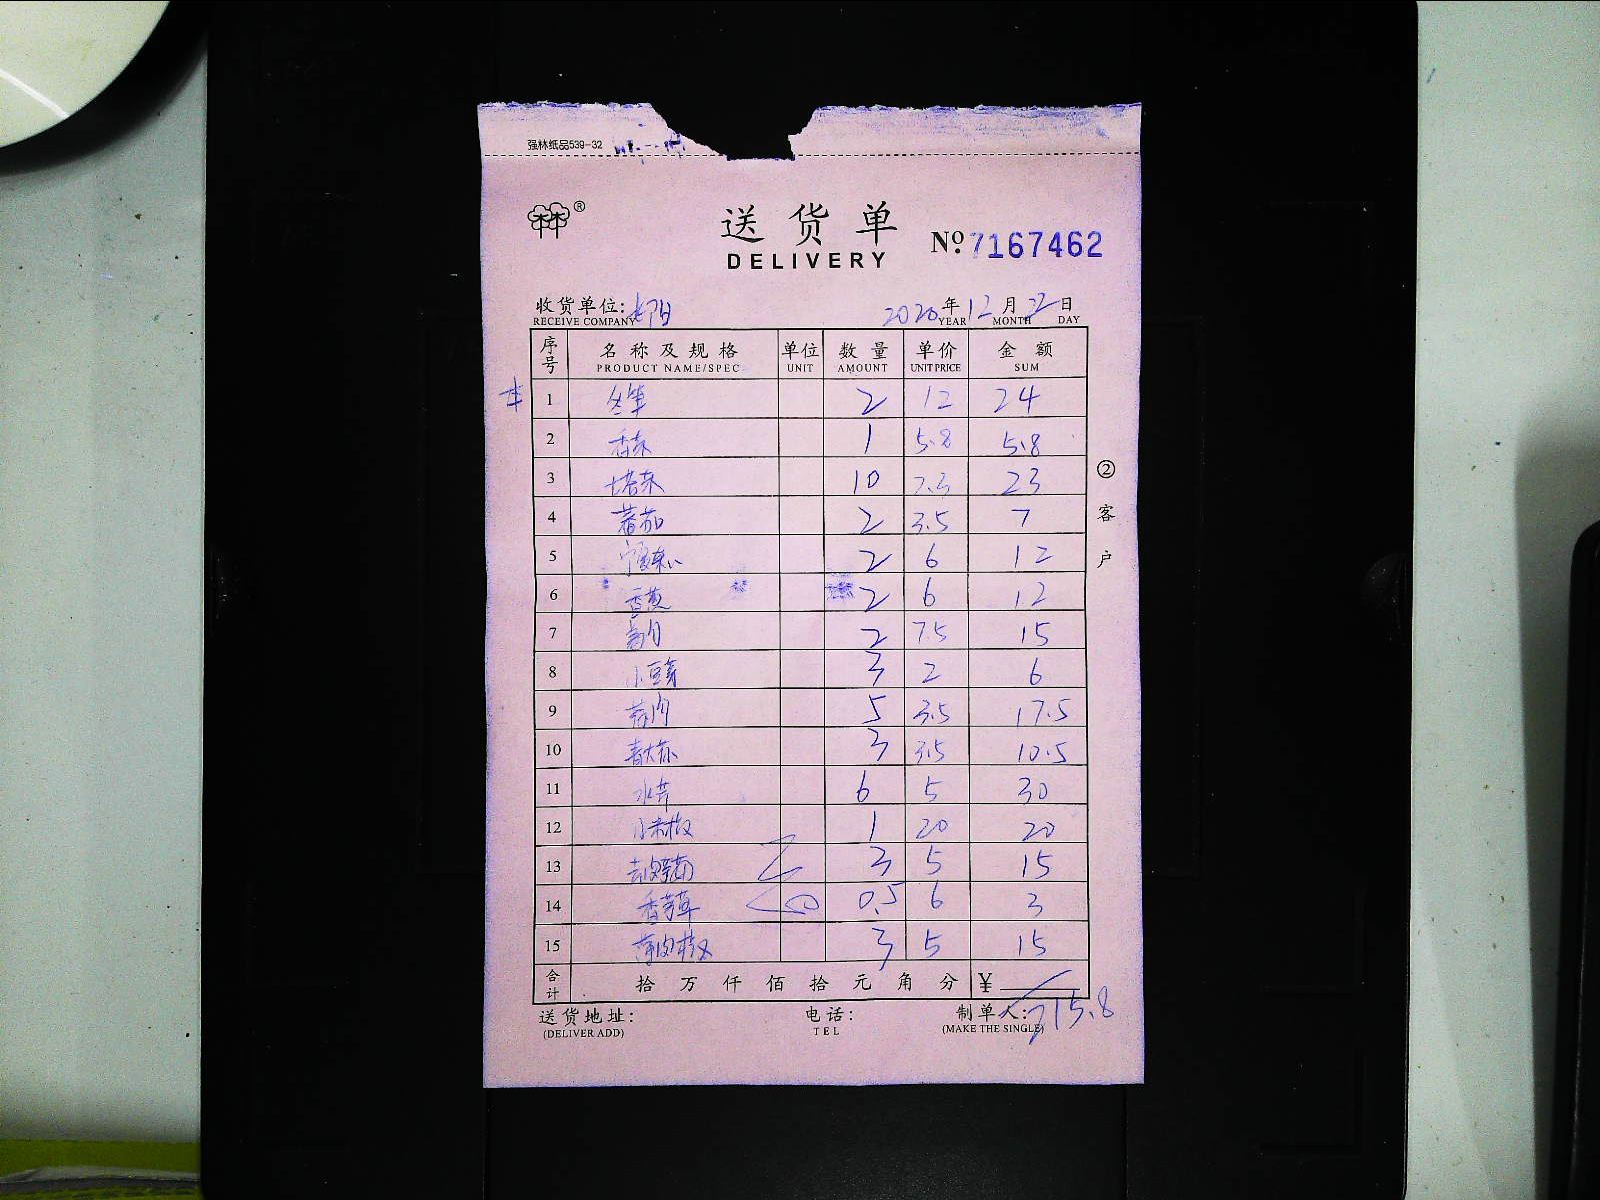 强林纸品539-32
®
送货单
DELIVERY
№ 7167462
收货单位:
RECEIVE COMPANY
2020年12月22日
YEAR MONTH DAY
序号 名称及规格 单位 数量 单价 金额
PRODUCT NAME/SPEC UNIT AMOUNT UNIT PRICE SUM
1 2 12 24
2 香菜 1 5.8 5.8
3 塔菜 10 23
4 蕃茄 2 3.5 7
5 2 6 12
6 香葱 2 6 12
7 2 7.5 15
8 小豆芽 3 2 6
9 蒜肉 5 3.5 17.5
10 3 3.5 10.5
11 水芹 6 5 30
12 小米椒 1 20 20
13 3 5 15
14 香芹 0.5 6 3
15 薄肉椒 3 5 15
合计 拾万仟佰拾元角分 ¥ 215.8
② 客户
送货地址:
(DELIVER ADD)
电话:
TEL
制单人:
(MAKE THE SINGLE)